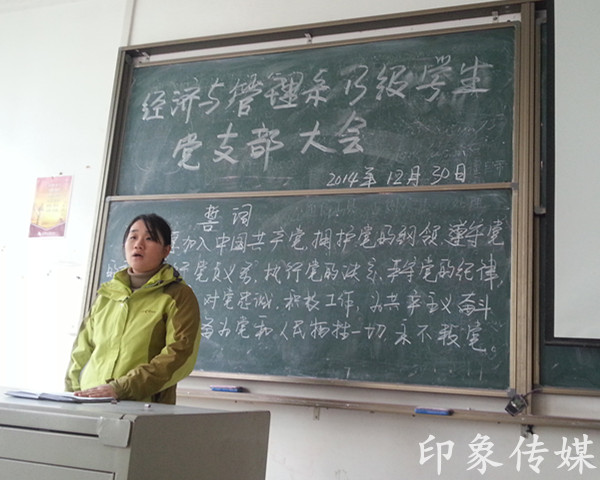 经济与管理系13级学生
党支部大会
2014年12月30日
誓词
加入中国共产党,拥护党的纲领,遵守党
党员义务,执行党的决定,严守党的纪律,
对党忠诚,积极工作,为共产主义奋斗
为党和人民牺牲一切,永不叛党。
印象传媒